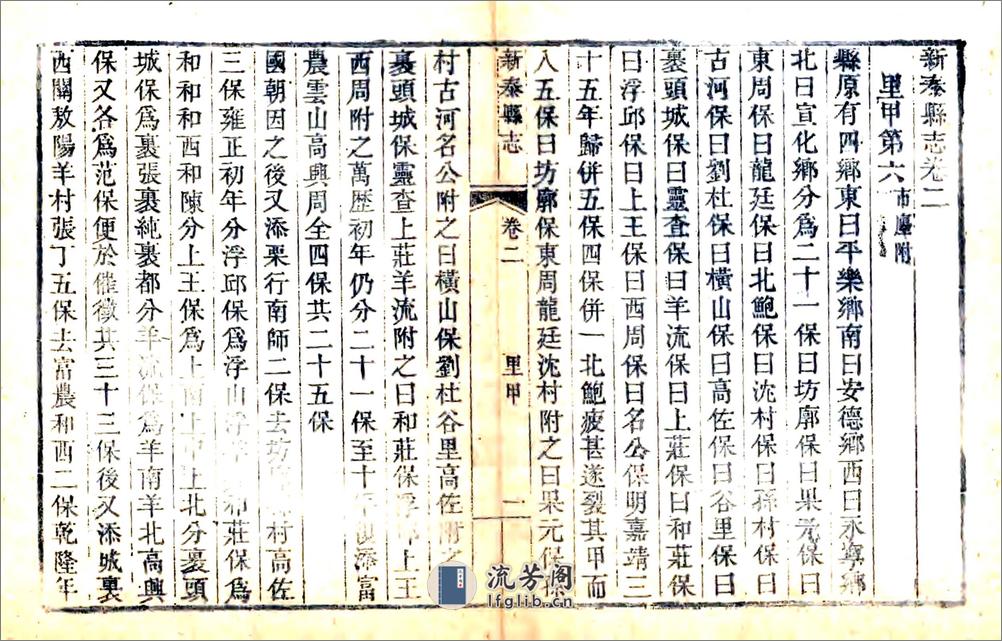 新泰縣志卷二
里甲第六 市廛附
縣原有四鄉東曰平樂鄉南曰安德鄉西曰永寧鄉
北曰宣化鄉分爲二十一保曰坊廓保曰果元保曰
東周保曰龍廷保曰北鮑保曰沈村保曰孫村保曰
古河保曰劉杜保曰橫山保曰高佐保曰谷里保曰
裏頭城保曰靈查保曰羊流保曰上莊保曰和莊保
曰浮邱保曰上王保曰西周保曰名公保明嘉靖三
十五年歸併五保四保併一北鮑疲甚遂裂其甲而
八五保曰坊廓保東周龍廷沈村附之曰果元保孫
新泰縣志 卷二 里甲 一
村古河名公附之曰橫山保劉杜谷里高佐附之
裏頭城保靈查上莊羊流附之曰和莊保浮邱上王
西周附之萬歷初年仍分二十一保至十年復添富
農雲山高興周全四保共二十五保
國朝因之後又添栗行南師二保去坊村高佐
三保雍正初年分浮邱保爲浮山浮和莊保爲
和和和西和陳分上王保爲上南上中上北分裏頭
城保爲裏張裏純裏都分羊流保爲羊南羊北高興
保又各爲范保便於催徵共三十三保後又添城裏
西關敖陽羊村張丁五保去富農和西二保乾隆年
流芳阁
lfglib.cn